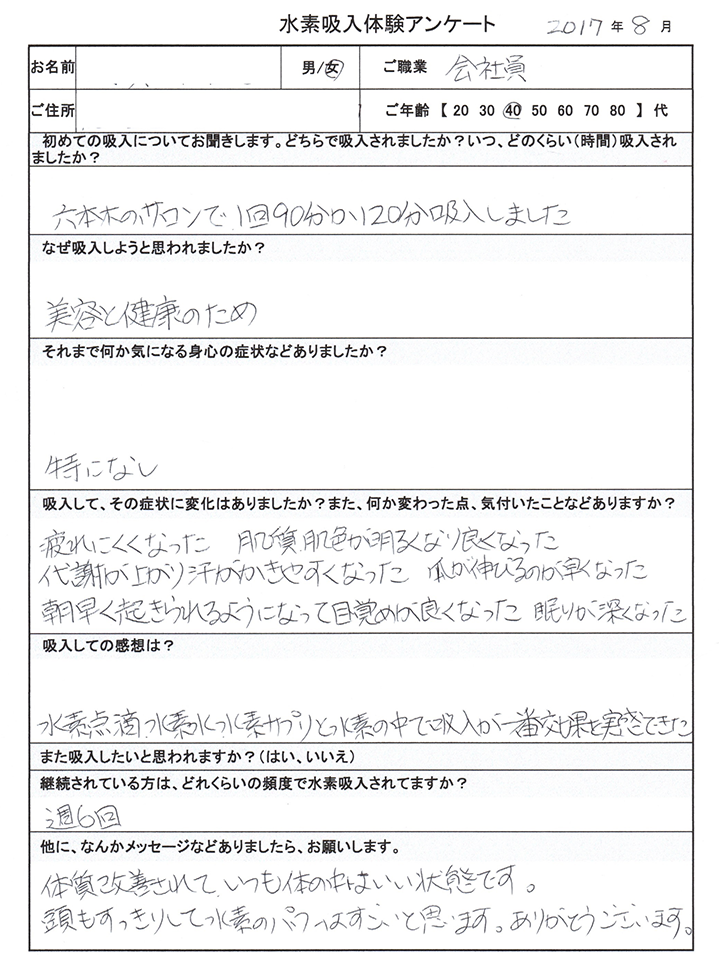 水素吸入体験アンケート 2017年 8月
お名前 男/女 ご職業 会社員
ご住所 ご年齢【 20 30 40 50 60 70 80 】代
初めての吸入についてお聞きします。どちらで吸入されましたか？いつ、どのくらい（時間）吸入され
ましたか？
六本木のサロンで1回90分か120分吸入しました
なぜ吸入しようと思われましたか？
美容と健康のため
それまで何か気になる身心の症状などありましたか？
特になし
吸入して、その症状に変化はありましたか？また、何か変わった点、気付いたことなどありますか？
疲れにくくなった 肌質、肌色が明るくなり良くなった
代謝が上がり汗がかきやすくなった 爪が伸びるのが早くなった
朝早く起きられるようになって目覚めが良くなった 眠りが深くなった
吸入しての感想は？
水素点滴、水素水、水素サプリと水素の中で吸入が一番効果を実感できた
また吸入したいと思われますか？（はい、いいえ）
継続されている方は、どれくらいの頻度で水素吸入されてますか？
週6回
他に、なんかメッセージなどありましたら、お願いします。
体質改善されて、いつも体の中はいい状態です。
頭もすっきりして水素のパワーはすごいと思います。ありがとうございます。